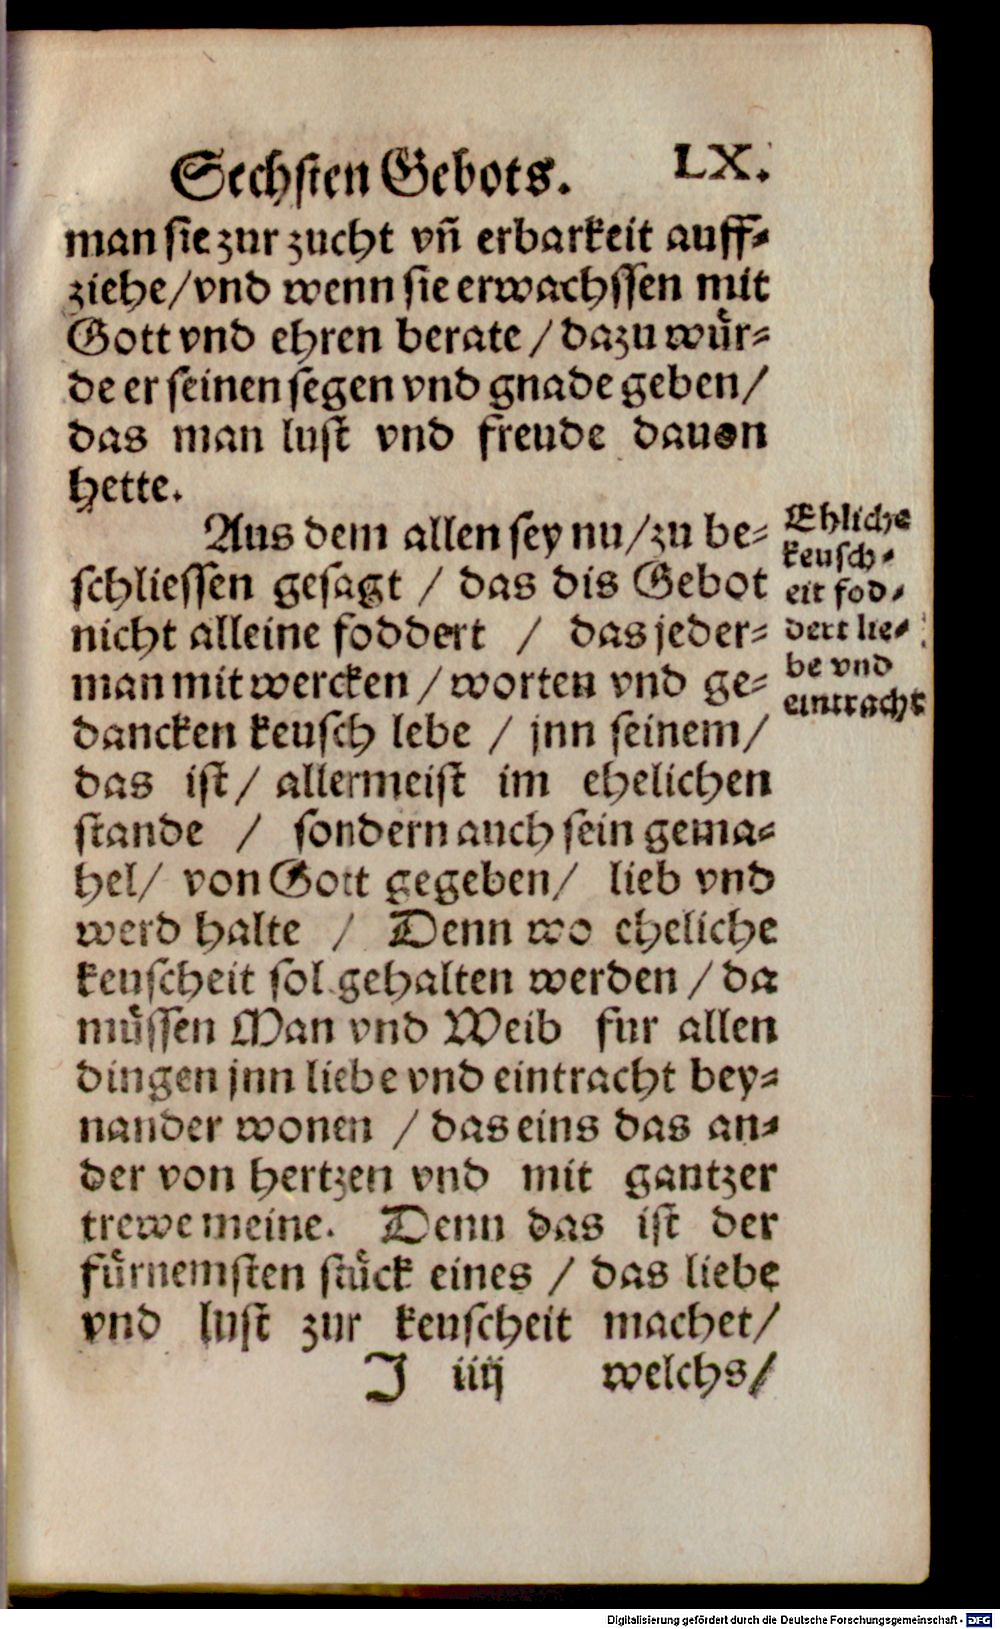 Sechsten Gebots. LX.
man sie zur zucht vn̄ erbarkeit auff⸗
ziehe/vnd wenn sie erwachssen mit
Gott vnd ehren berate / dazu wuͤr⸗
de er seinen segen vnd gnade geben/
das man lust vnd freude dauon
hette.
Aus dem allen sey nu/zu be⸗
schliessen gesagt / das dis Gebot
nicht alleine foddert / das jeder⸗
man mit wercken / worten vnd ge⸗
dancken keusch lebe / jnn seinem/
das ist/ allermeist im ehelichen
stande / sondern auch sein gema⸗
hel/ von Gott gegeben/ lieb vnd
werd halte / Denn wo eheliche
keuscheit sol gehalten werden / da
muͤssen Man vnd Weib fur allen
dingen jnn liebe vnd eintracht bey⸗
nander wonen / das eins das an⸗
der von hertzen vnd mit gantzer
trewe meine. Denn das ist der
fuͤrnemsten stuͤck eines / das liebe
vnd lust zur keuscheit machet/
J iiij welchs/
Ehliche
keusch⸗
eit fod⸗
dert lie⸗
be vnd
eintracht
Digitalisierung gefördert durch die Deutsche Forschungsgemeinschaft - DFG